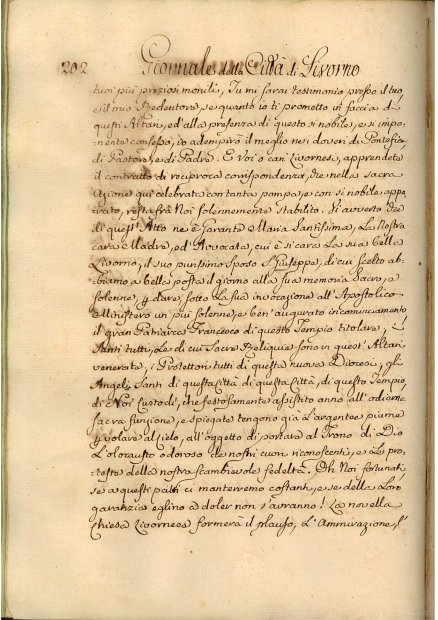 202 Giornale della Città di Livorno
tuoi più preziosi monili, Tu mi sarai testimonio presso il tuo,
e il mio Redentore, se quanto io ti prometto in faccia a
questi Altari, ed alla presenza di questo sì nobile, e sì impo-
nente consesso, io adempirò il meglio nei doveri di Pontefice
di Pastore, e di Padre. E Voi o cari Livornesi, apprendete
il contratto di reciproca corrispondenza, che nella sacra
Azione qui celebrata con tanta pompa, e con sì nobile appa-
rato, resta frà Noi solennemente stabilito. Si avverta che
di quest'Atto ne è Garante Maria Santissima, La Nostra
cara Madre, ed Avvocata, cui è sì cara La sua bella
Livorno, il suo purissimo sposo S. Giuseppe, di cui scelto ab-
biamo a bella posta il giorno alla sua memoria Sacro, e
solenne, per dare, sotto La sua invocazione all'Apostolico
Ministero un più solenne, e ben'augurato incominciamento
il gran Patriarca Francesco di questo Tempio titolare, i
Santi tutti, Le di cui Sacre Reliquie sono in quest'Altari
venerate, i Protettori tutti di questa nuova Diocesi, gli
Angeli Santi di questa Città di questa Città, di questo Tempio,
di Noi Custodi, che festosamente assistito anno all'odierna
sacra funzione, e spiegate tengono già L'argentee piume
per volare al Cielo, all'oggetto di portare al Trono di Dio
L'olocausto odoroso de nostri cuori riconoscenti, e La pro-
testa della nostra scambievole fedeltà. Oh Noi fortunati
se a questi patti ci manterremo costanti, e se della Loro
garanzia eglino a doler non s'avranno! La novella
Chiesa Livornese formerà il plauso, L'Ammirazione, l'